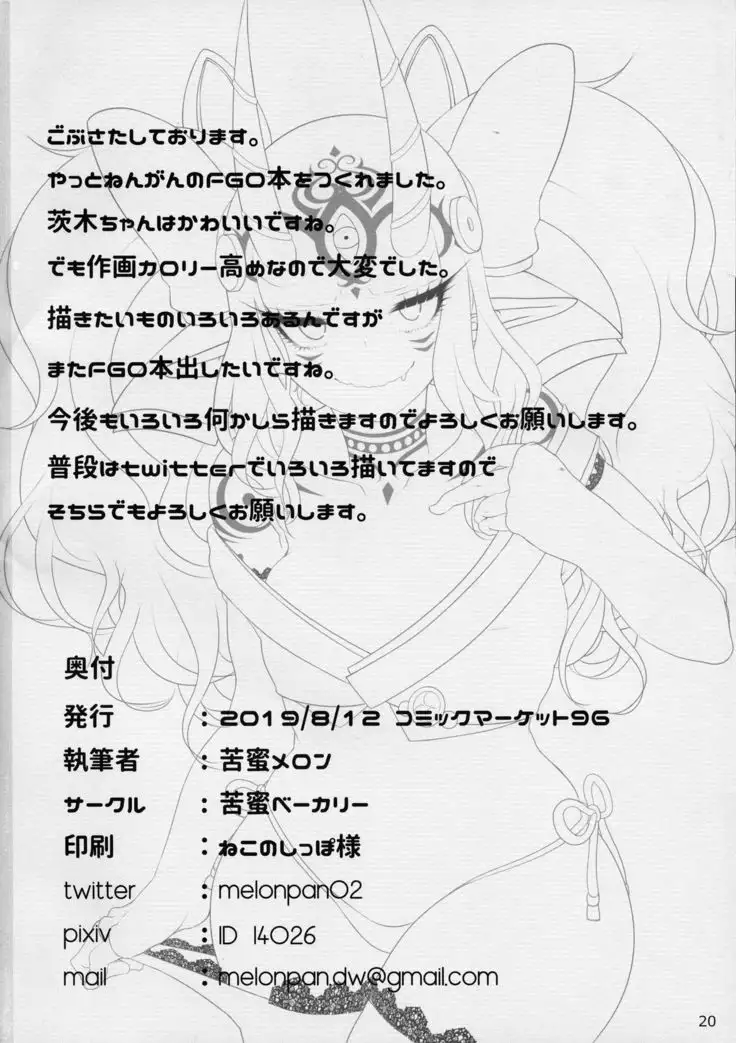 ごぶさたしております。
やっとねんがんのFGO本をつくれました。
茨木ちゃんはかわいいですね。
でも作画カロリー高めなので大変でした。
描きたいものいろいろあるんですが
またFGO本出したいですね。
今後もいろいろ何かしら描きますのでよろしくお願いします。
普段はtwitterでいろいろ描いてますので
そちらでもよろしくお願いします。
奥付
発行 : 2019/8/12 コミックマーケット96
執筆者 : 苦蜜メロン
サークル : 苦蜜ベーカリー
印刷 : ねこのしっぽ様
twitter : melonpan02
pixiv : ID 14026
mail : melonpan.dw@gmail.com
20